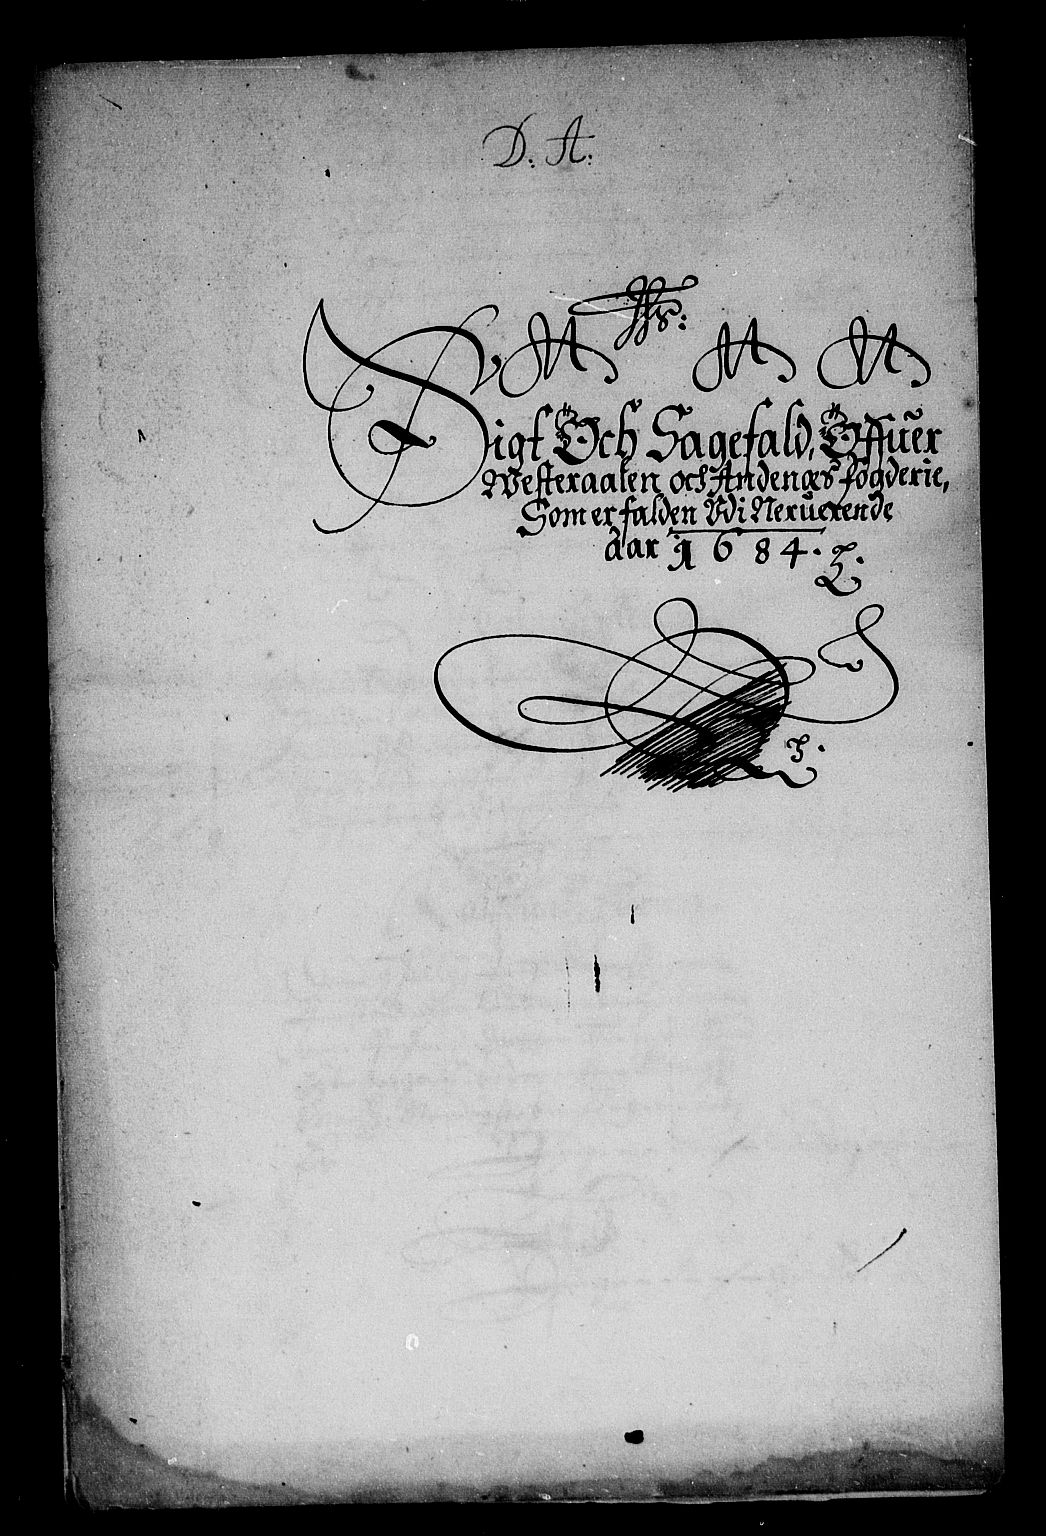 D. A:
Sigt Och Sagefald, Offuer
Westeraalen och Andenæs fogderie,
Som er falden Udi Neruerende
aar 1684.